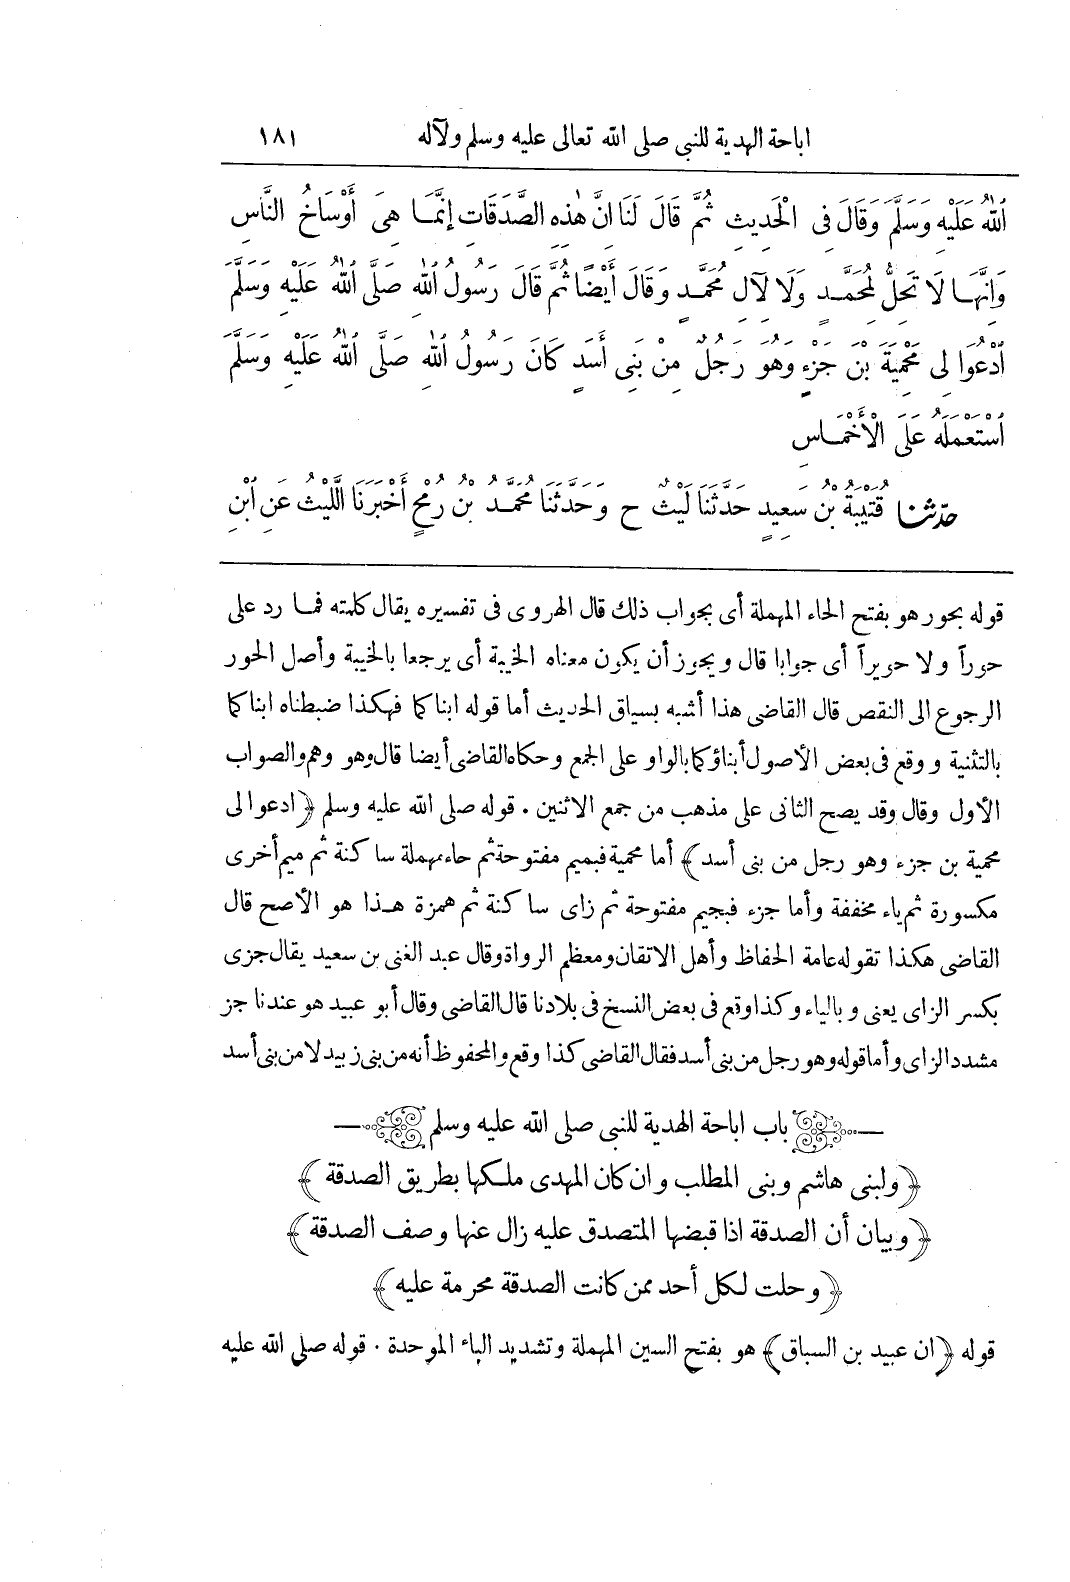 اباحة الهدية للنبى صلى الله تعالى عليه وسلم ولآله ١٨١
اللهُ عَلَيْهِ وَسَلَّمَ وَقَالَ فِى الْحَدِيثِ ثُمَّ قَالَ لَنَا انَّ هٰذِهِ الصَّدَقَاتِ إِنَّمَا هِىَ أَوْسَاخُ النَّاسِ
وَانَّهَا لَا تَحِلُّ لِمُحَمَّدٍ وَلَا لِآلِ مُحَمَّدٍ وَقَالَ أَيْضًا ثُمَّ قَالَ رَسُولُ اللهِ صَلَّى اللهُ عَلَيْهِ وَسَلَّمَ
اُدْعُوَا لِى مَحْمِيَةَ بْنَ جَزْءٍ وَهُوَ رَجُلٌ مِنْ بَنِى أَسَدٍ كَانَ رَسُولُ اللهِ صَلَّى اللهُ عَلَيْهِ وَسَلَّمَ
اسْتَعْمَلَهُ عَلَى الْأَخْمَاسِ
حدّثنا قُتَيْبَةُ بْنُ سَعِيدٍ حَدَّثَنَا لَيْثٌ ح وَحَدَّثَنَا مُحَمَّدُ بْنُ رُمْحٍ أَخْبَرَنَا اللَّيْثُ عَنِ ابْنِ
قوله بحور هو بفتح الحاء المهملة أى بجواب ذلك قال الهروى فى تفسيره يقال كلمته فما رد على
حوراً ولا حويراً أى جوابا قال ويجوز أن يكون معناه الخيبة أى يرجعا بالخيبة وأصل الحور
الرجوع الى النقص قال القاضى هذا أشبه بسياق الحديث أما قوله ابناكما فهكذا ضبطناه ابناكما
بالتثنية ووقع فى بعض الأصول أبناؤكما بالواو على الجمع وحكاه القاضى أيضا قال وهو وهم والصواب
الأول وقال وقد يصح الثانى على مذهب من جمع الاثنين . قوله صلى الله عليه وسلم ﴿ ادعوا لى
محمية بن جزء وهو رجل من بنى أسد ﴾ أما محمية فبميم مفتوحة ثم حاء مهملة ساكنة ثم ميم أخرى
مكسورة ثم ياء مخففة وأما جزء فبجيم مفتوحة ثم زاى ساكنة ثم همزة هذا هو الأصح قال
القاضى هكذا تقوله عامة الحفاظ وأهل الاتقان ومعظم الرواة وقال عبد الغنى بن سعيد يقال جزى
بكسر الزاى يعنى وبالياء وكذا وقع فى بعض النسخ فى بلادنا قال القاضى وقال أبو عبيد هو عندنا جز
مشدد الزاى وأما قوله وهو رجل من بنى أسد فقال القاضى كذا وقع والمحفوظ أنه من بنى زبيد لا من بنى أسد
باب اباحة الهدية للنبى صلى الله عليه وسلم
﴿ ولبنى هاشم وبنى المطلب وان كان المهدى ملكها بطريق الصدقة ﴾
﴿ وبيان أن الصدقة اذا قبضها المتصدق عليه زال عنها وصف الصدقة ﴾
﴿ وحلت لكل أحد ممن كانت الصدقة محرمة عليه ﴾
قوله ﴿ ان عبيد بن السباق ﴾ هو بفتح السين المهملة وتشديد الباء الموحدة . قوله صلى الله عليه